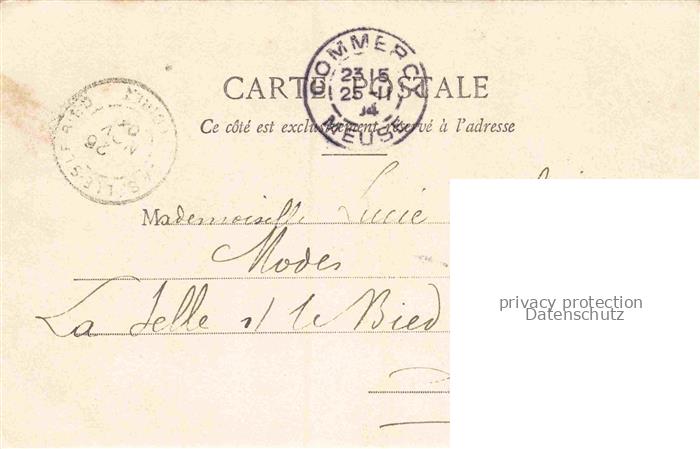 COMMERCY
23 15
25-11
04
MEUSE
CARTE POSTALE
Ce côté est exclusivement réservé à l'adresse
26
NOV
04
Mademoiselle Lucie
Modes
La Selle s/ le Bied
privacy protection
Datenschutz